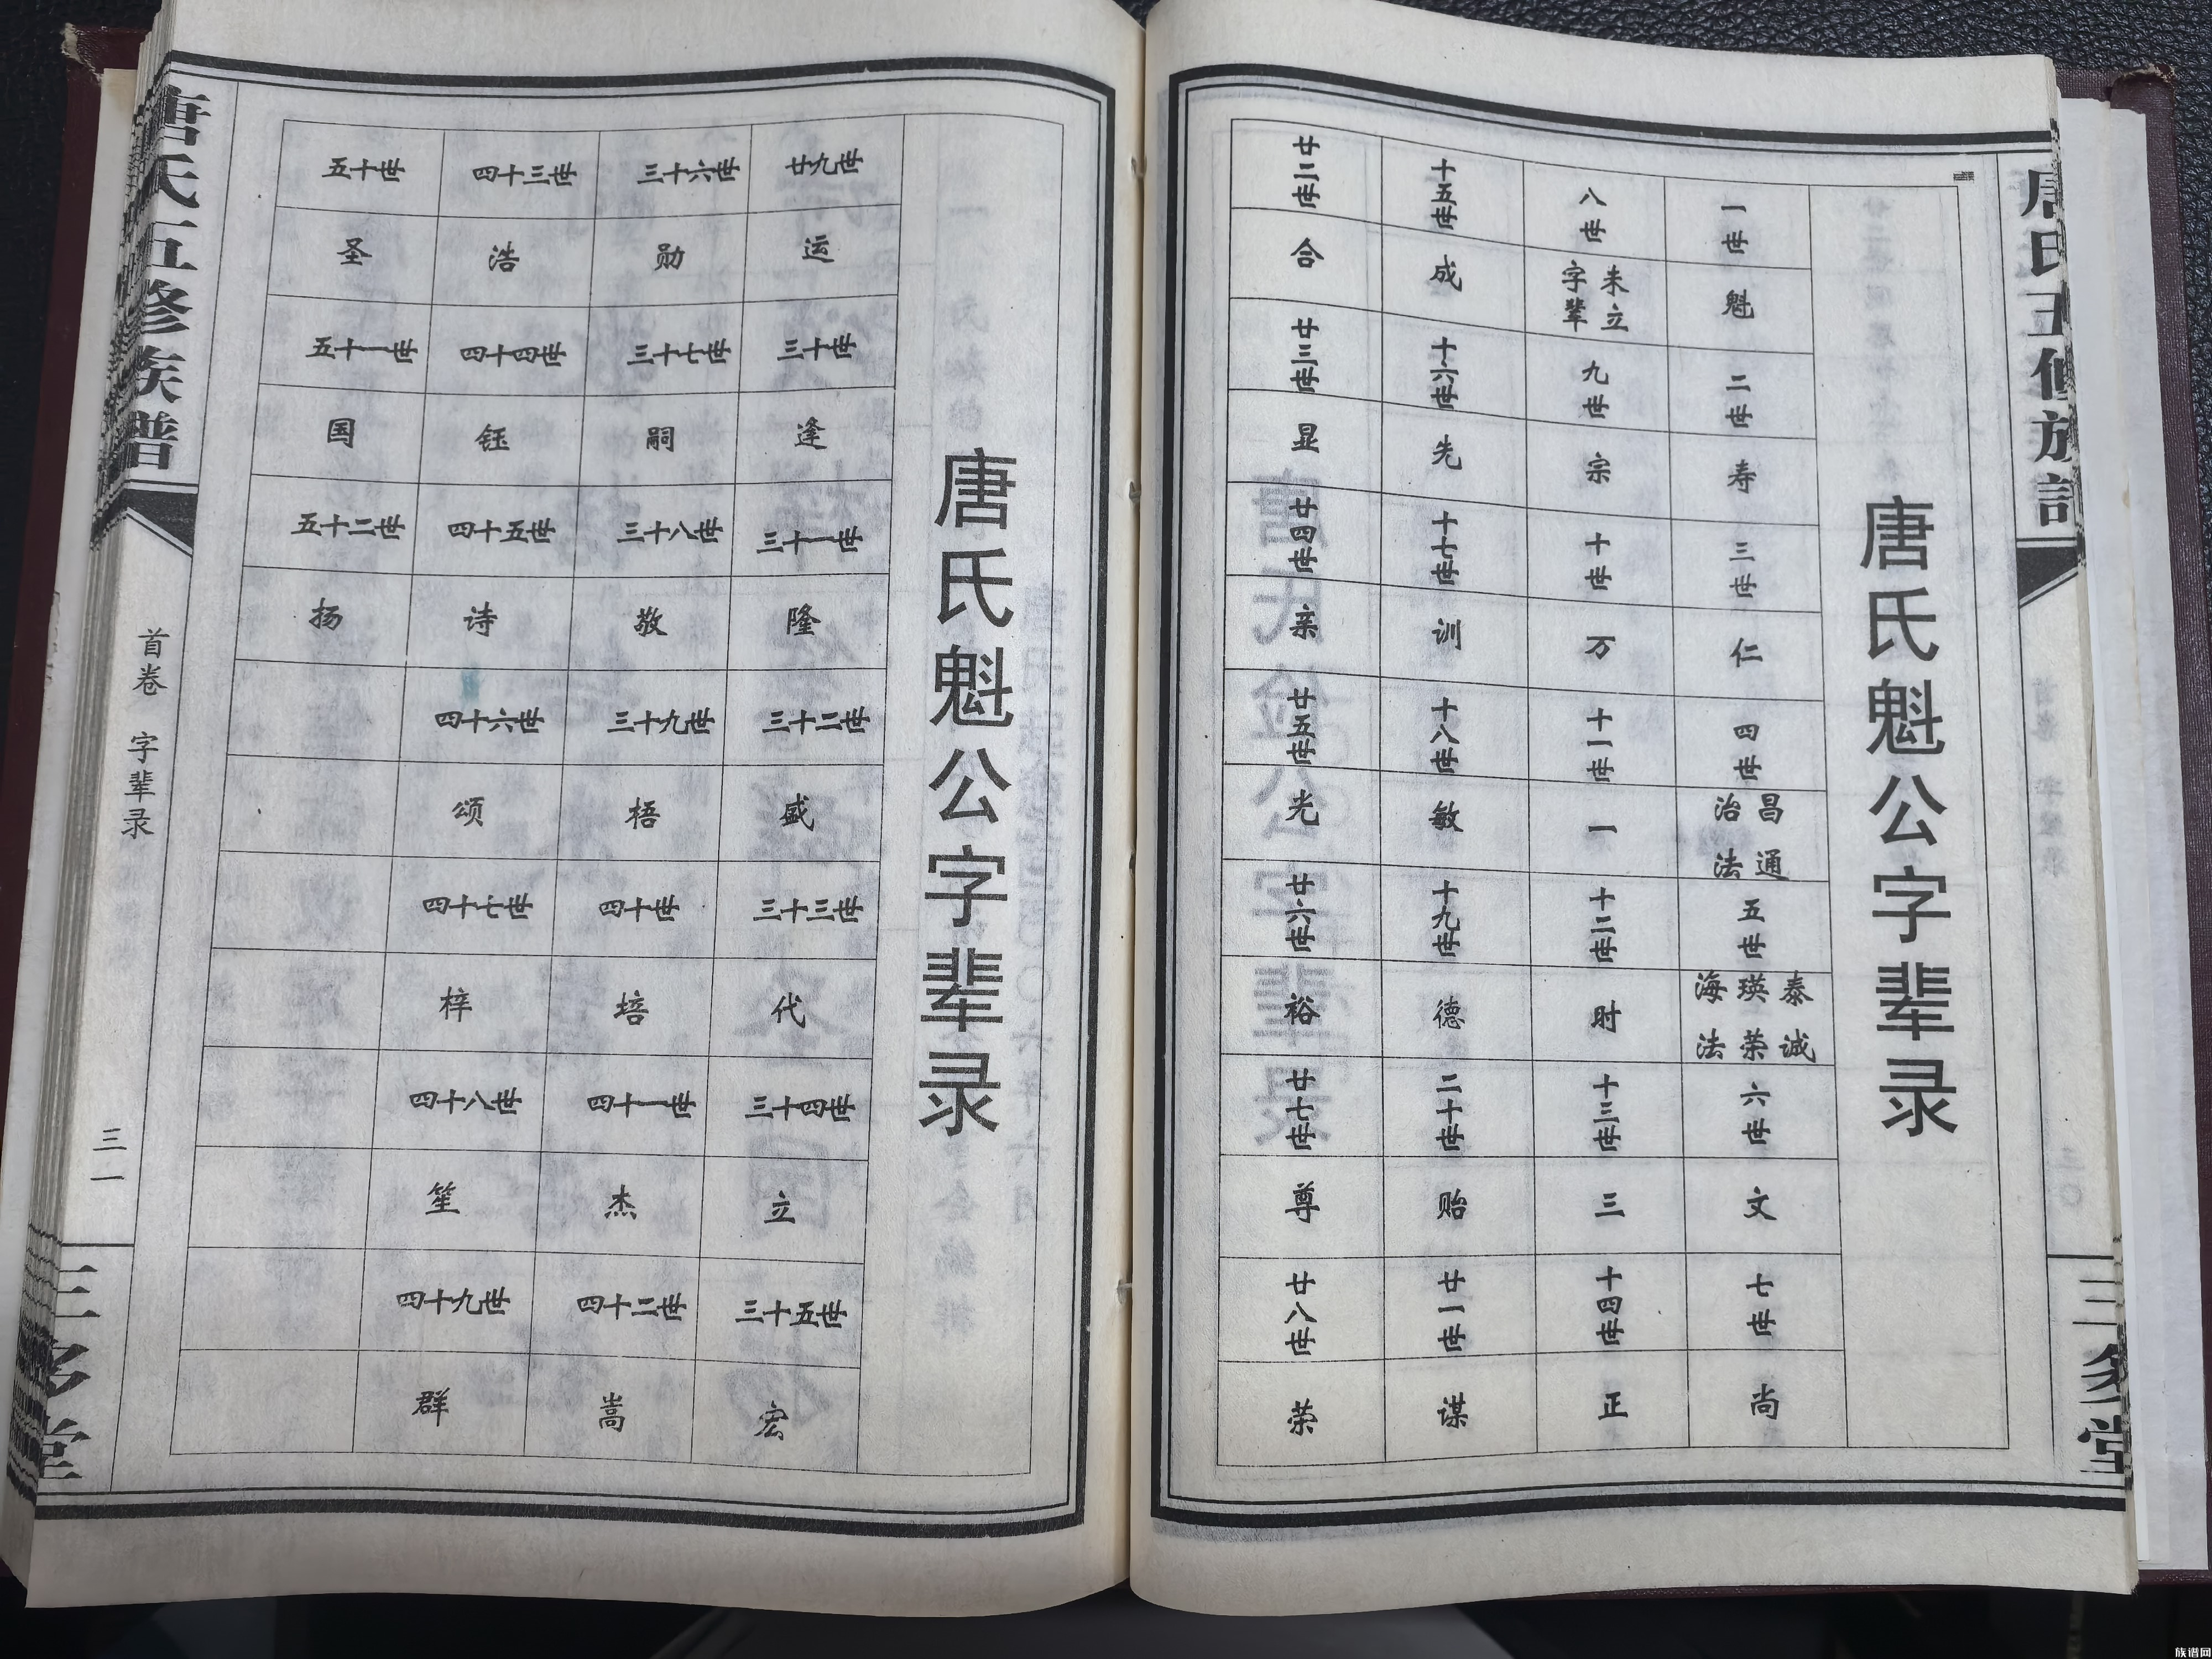 唐氏五修族谱
三多堂
唐氏魁公字辈录
一世
魁
二世
寿
三世
仁
四世
昌通
治法
五世
泰诚
瑛荣
海法
六世
文
七世
尚
八世
未立
字辈
九世
宗
十世
万
十一世
一
十二世
时
十三世
三
十四世
正
十五世
成
十六世
先
十七世
训
十八世
敏
十九世
德
二十世
贻
廿一世
谋
廿二世
合
廿三世
显
廿四世
亲
廿五世
光
廿六世
裕
廿七世
尊
廿八世
荣
唐氏魁公字辈录
廿九世
运
三十世
逢
三十一世
隆
三十二世
盛
三十三世
代
三十四世
立
三十五世
宏
三十六世
勋
三十七世
嗣
三十八世
敬
三十九世
梧
四十世
培
四十一世
杰
四十二世
嵩
四十三世
浩
四十四世
钰
四十五世
诗
四十六世
颂
四十七世
梓
四十八世
笙
四十九世
群
五十世
圣
五十一世
国
五十二世
扬
唐氏五修族谱
首卷 字辈录
三一
三多堂
族谱网